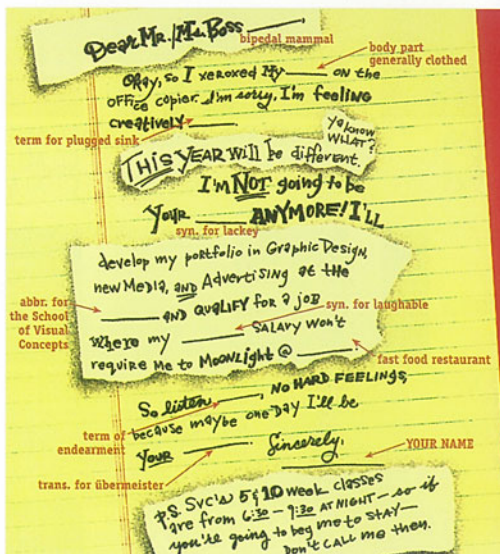 Dear Mr./Ms. Boss
bipedal mammal
body part
generally clothed
Okay, so I xeroxed my ____ on the
office copier. I'm sorry, I'm feeling
creatively ____.
term for plugged sink
ya know
WHAT?
THIS YEAR Will be different.
I'm NOT going to be
Your ____ ANYMORE! I'LL
syn. for lackey
develop my portfolio in Graphic Design,
new Media, AND Advertising at the
____ AND QUALIFY for a job
abbr. for
the School
of Visual
Concepts
syn. for laughable
Where my ____ SALARY Won't
require Me to MoonLight @ ____!
fast food restaurant
So listen ____, NO HARD FEELINGS,
because maybe one day I'll be
term of
endearment
Your ____ Sincerely,
YOUR NAME
trans. for übermeister
P.S. SVC's 5 & 10 week classes
are from 6:30 – 9:30 AT NIGHT – so if
you're going to beg me to STAY –
Don't CALL me then.